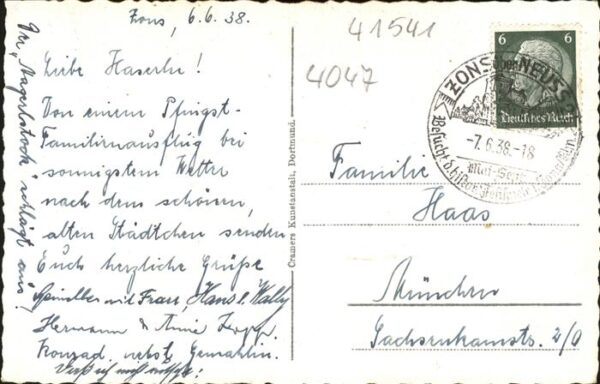 Zons, 6.6.38.
Liebe Haserln!
Von einem Pfingst-
Familienausflug bei
sonnigstem Wetter
nach dem schönen,
alten Städtchen senden
Euch herzliche Grüße
mit Frau, Hans & Wally
Hermann & Änne
Konrad nebst Gemahlin.
Der „Nagelstock" schlägt aus!
Cramers Kunstanstalt, Dortmund.
41541
4047
6 6
Deutsches Reich
ZONS über NEUSS 2
-7.6.38.-18
Besucht d. histor.
Familie
Haas
München
Sachsenkamstr. 2/0